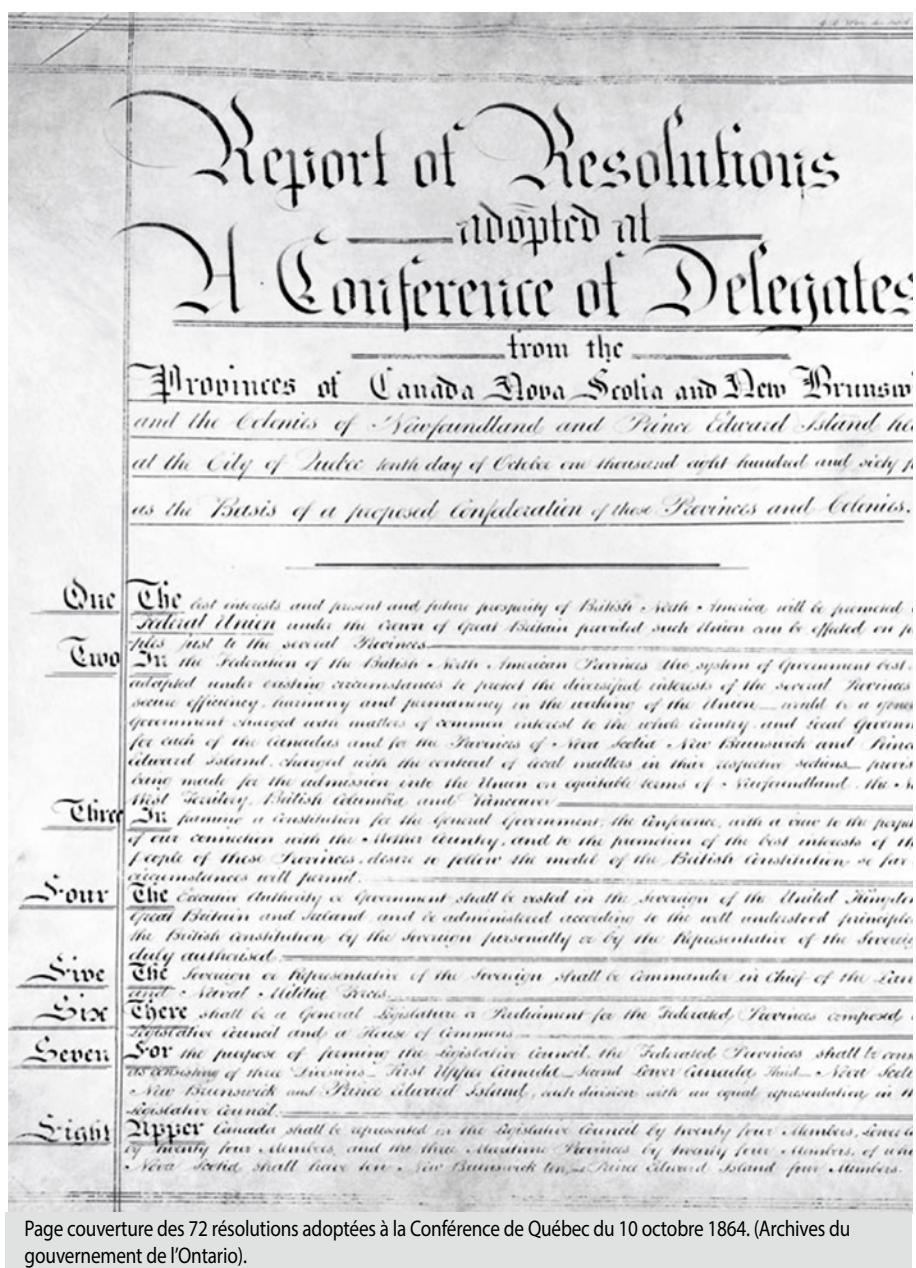 Report of Resolutions
adopted at
A Conference of Delegates
from the
Provinces of Canada Nova Scotia and New Brunsw
and the Colonies of Newfoundland and Prince Edward Island he
at the City of Quebec tenth day of October one thousand eight hundred and sixty
as the Basis of a proposed Confederation of these Provinces and Colonies.
One The best interests and present and future prosperity of British North America will be promoted
Federal Union under the Crown of Great Britain provided such Union can be effected on
ples just to the several Provinces
Two In the Federation of the British North American Provinces the system of Government best
adapted under existing circumstances to protect the diversified interests of the several Provinces
secure efficiency, harmony and permanency in the working of the Union would be a gene
Government charged with matters of common interest to the whole Country and Local Governm
for each of the Canadas and for the Provinces of Nova Scotia New Brunswick and Prince
Edward Island, charged with the control of local matters in their respective sections provis
being made for the admission into the Union on equitable terms of Newfoundland, the N
West Territory, British Columbia and Vancouver
Three In framing a Constitution for the General Government, the Conference, with a view to the perpe
of our connection with the Mother Country, and to the promotion of the best interests of th
people of these Provinces, desire to follow the model of the British Constitution so far
circumstances will permit.
Four The Executive Authority or Government shall be vested in the Sovereign of the United Kingdom
Great Britain and Ireland, and be administered according to the well understood principle
the British Constitution by the Sovereign personally or by the Representative of the Sovereig
duly authorised.
Five The Sovereign or Representative of the Sovereign shall be Commander in Chief of the Lan
and Naval Militia Forces.
Six There shall be a General Legislature or Parliament for the Federated Provinces composed
Legislative Council and a House of Commons
Seven For the purpose of forming the Legislative Council, the Federated Provinces shall be cons
as consisting of three Divisions First Upper Canada Second Lower Canada Third Nova Scot
New Brunswick and Prince Edward Island, each division with an equal representation in th
Legislative Council.
Eight Upper Canada shall be represented in the Legislative Council by twenty four Members, Lower Ca
by twenty four Members, and the three Maritime Provinces by twenty four Members, of whi
Nova Scotia shall have ten New Brunswick ten, Prince Edward Island four Members.
Page couverture des 72 résolutions adoptées à la Conférence de Québec du 10 octobre 1864. (Archives du
gouvernement de l'Ontario).